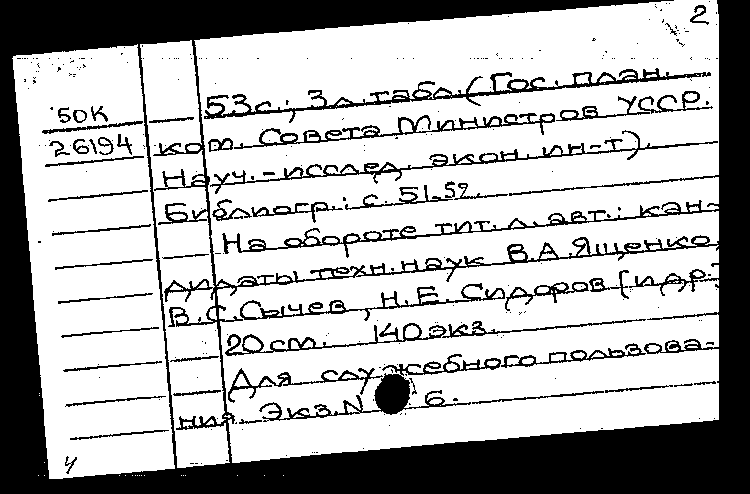 2
50К 53с.; 3л.табл.(Гос. план.
26194 ком. Совета Министров УССР.
Науч.-исслед. экон. ин-т).
Библиогр.: с. 51-52.
На обороте тит. л. авт.: кан-
дидаты техн. наук В.А.Ященко,
В.С.Сычев, Н.Е. Сидоров [и др.]
20см. 140экз.
Для служебного пользова-
ния. Экз.N 6.